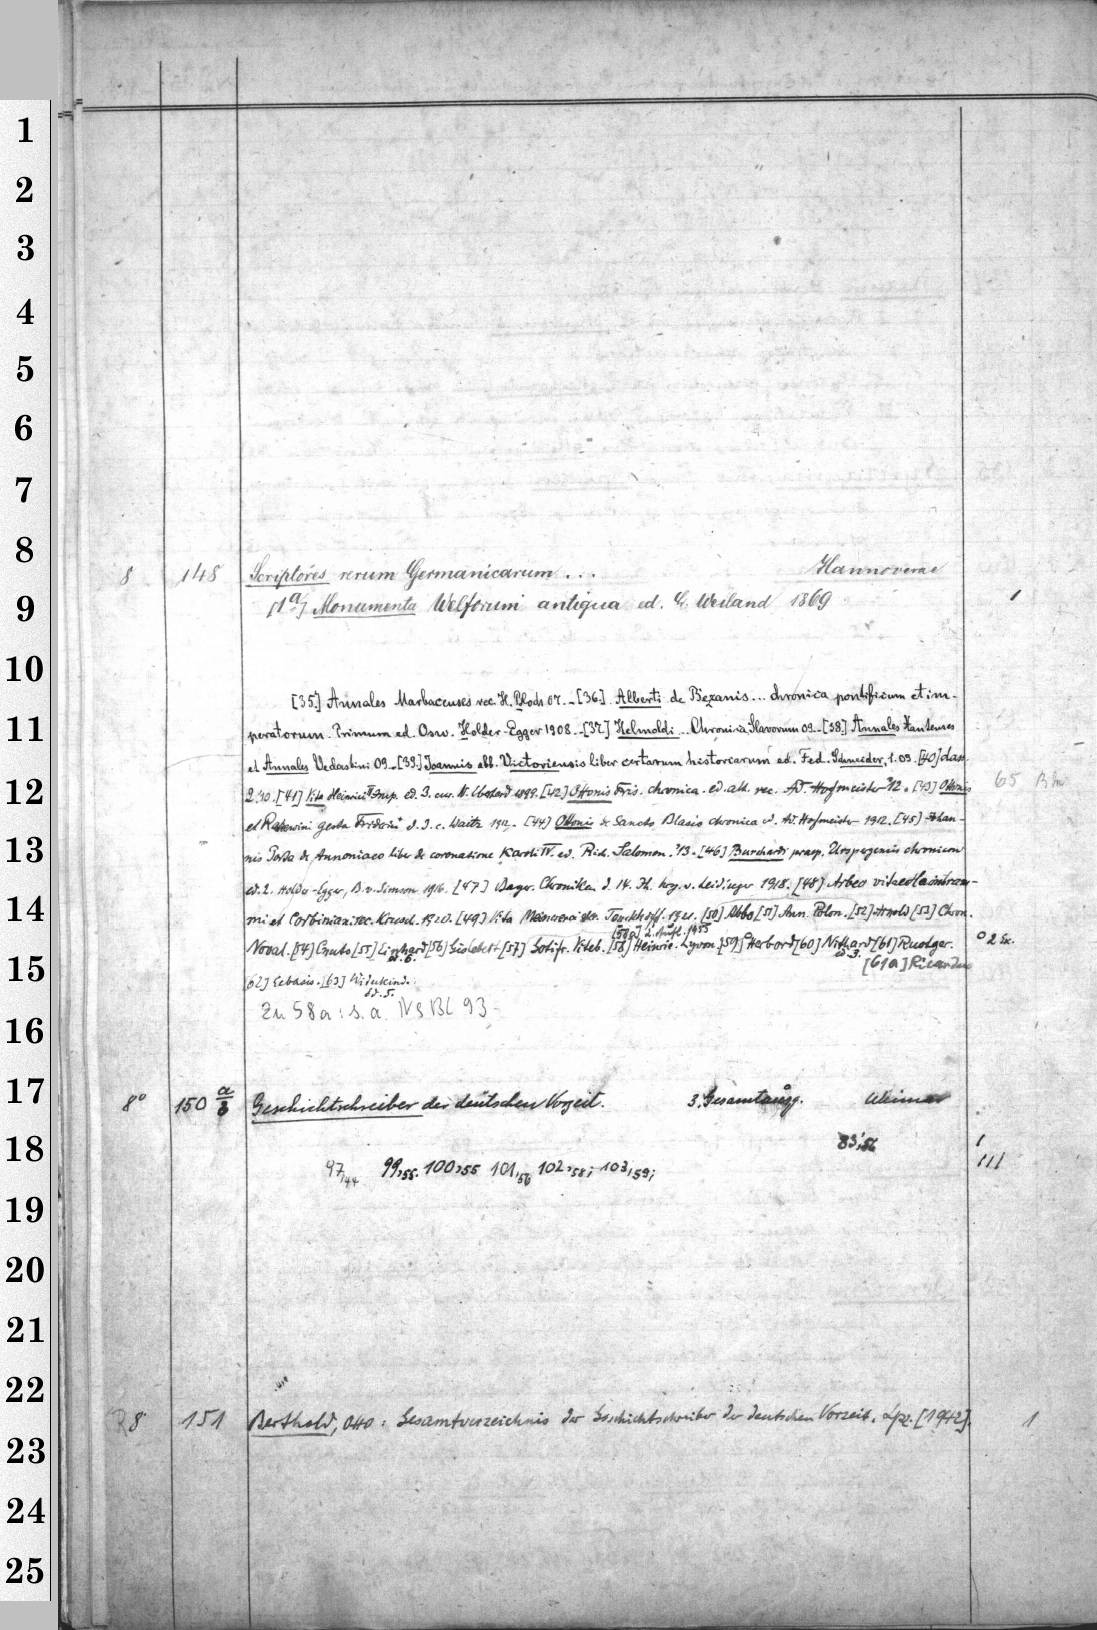 1
2
3
4
5
6
7
8
8 148 Scriptores rerum Germanicarum ... Hannoverae
9
[1a] Monumenta Welforum antiqua ed. L. Weiland 1869 1
10
[35.] Annales Marbacenses rec. H. Bloch 07. - [36.] Alberti de Bezanis ... chronica pontificum et im-
11
peratorum. Primum ed. Osw. Holder-Egger 1908. - [37.] Helmoldi ... Chronica Slavorum 09. - [38.] Annales Xantenses
et Annales Vedastini 09. - [39.] Joannis abb. Victoriensis liber certarum historiarum ed. Fed. Schneider, 1. 09. [40] dass.
12
2. 10. [41] Vita Heinrici IV Imp. ed. 3. cur. W. Eberhard 1899. [42] Ottonis Fris. chronica. ed. alt. rec. Ad. Hofmeister 12. [43] Ottonis 65
et Rahewini gesta Friderici d. I. c. Waitz 1912. - [44] Ottonis de Sancto Blasio chronica ed. Ad. Hofmeister 1912. [45] Johan-
13
nis Porta de Annoniaco liber de coronatione Karoli IV. ed. Rich. Salomon. 13. - [46] Burchardi praep. Urspergensis chronicon
ed. 2. Holder-Egger, B. v. Simson 1916. [47] Bayer. Chroniken d. 14. Jh. hrg. v. Leidinger 1918. [48] Arbeo vitae Haimhram-
14
mi et Corbiniani rec. Krusch. 1920. [49] Vita Meinwerci Tenckhoff. 1921. [50] Abbo [51] Ann. Polon. [52] Arnold [53] Chron.
[58a] 2. Aufl. 1955
Noval. [54] Cnuto [55] Einhard [56] Gislebert [57] Gotifr. Viterb. [58] Heinric. [59] Herbord [60] Nithard [61] Ruotger. 2 Ex.
ed. 6. ed. 3. [61a] Ricardus
15
62] Ecbasis. [63] Widukind.
ed. 5.
Zu 58a: s. a. IV S Bl 93
16
17
8° 150 a/b Geschichtschreiber der deutschen Vorzeit. 3. Gesamtausg. Weimar
18
83,56 1
97,44 99,55. 100,55 101,56 102,58; 103,59; 111
19
20
21
22
R 8° 151 Berthold, Otto: Gesamtverzeichnis der Geschichtschreiber der deutschen Vorzeit. Lpz. [1942]. 1
23
24
25